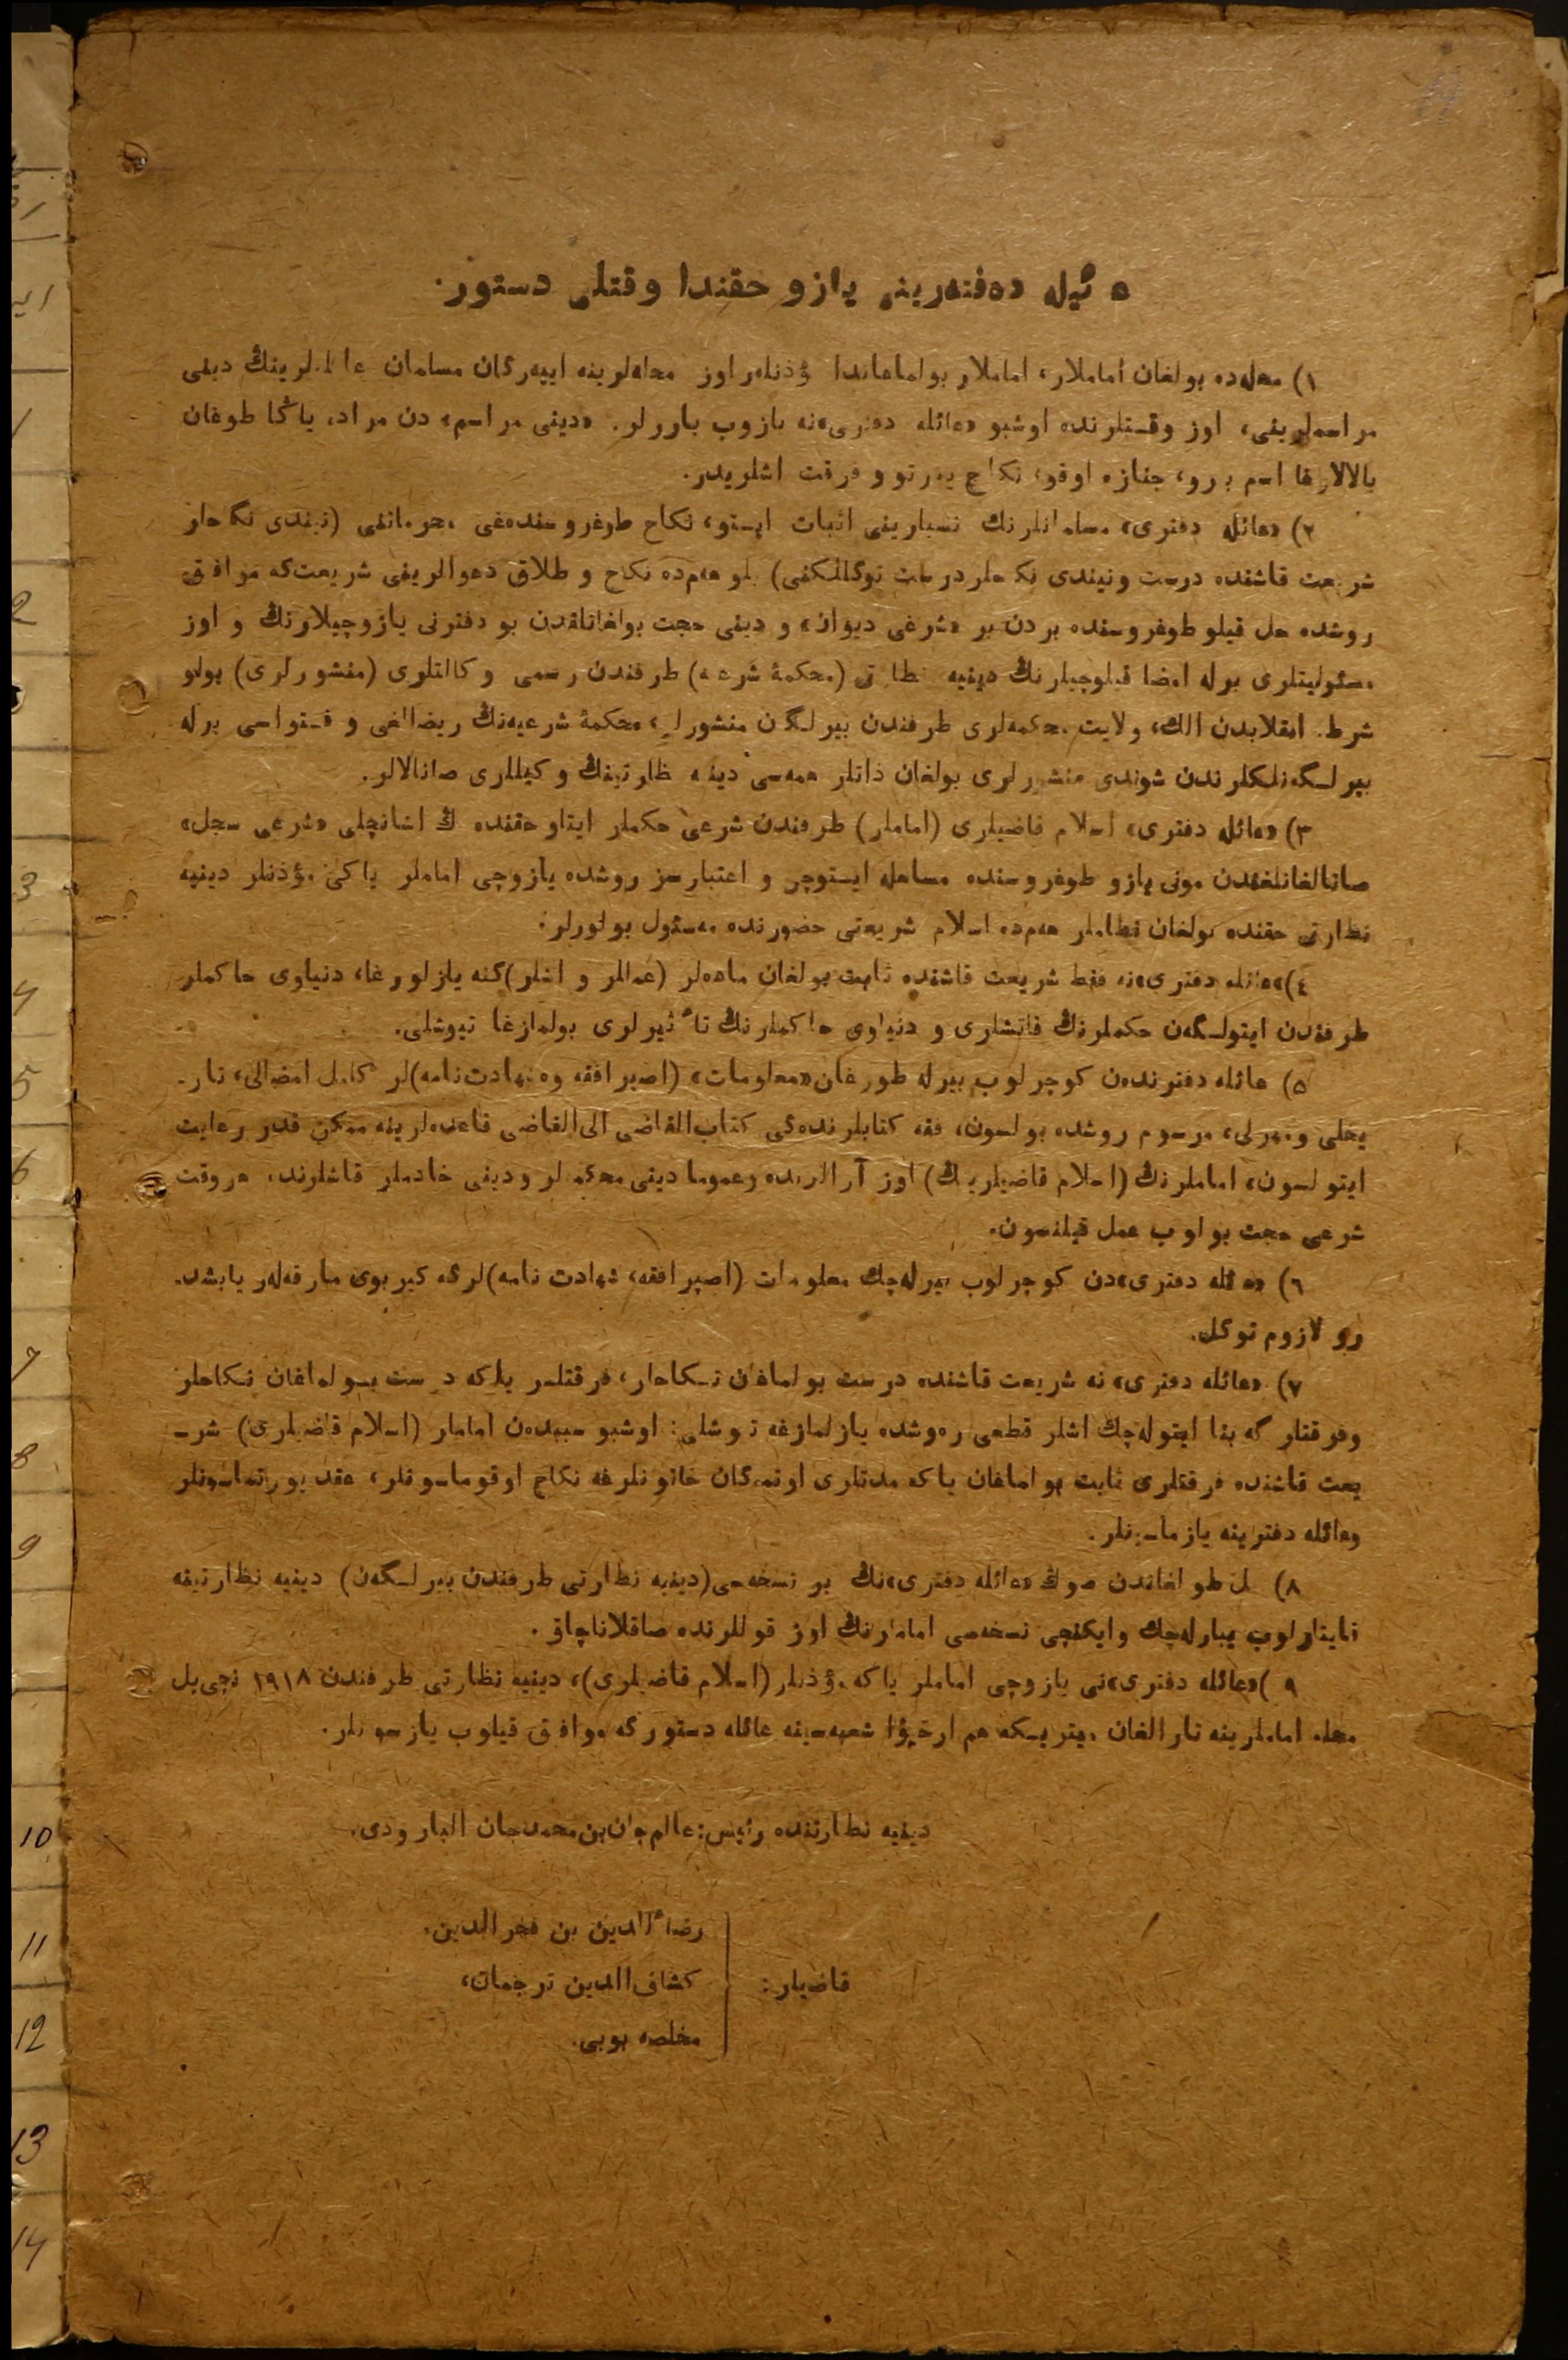 عائيله دەفتەرينى يازو حقندا وقتلى دستور.
١) محله‌ده بولغان اماملار، اماملار بولماغاندا مؤذنلەر اوز محله‌لرينه اييەرگان مسلمان عائله‌لرينڭ دينى
مراسملرينى، اوز وقتلرنده اوشبو «عائله دفترى»نه يازوب باررلر. «دينى مراسم» دن مراد، ياڭا طوغان
بالالارغا اسم بيرو، جنازه اوقو، نكاح يورتو و فرقت اشلريدر.
٢) «عائله دفترى» مسلمانلرنڭ نسبلرينى اثبات ايستو، نكاح طوغروسنده‌غى محرماتنى (نيندى نكاحلر
شريعت قاشنده درست ونيندى نكاحلر درست توگللكنى) بلو هم‌ده نكاح و طلاق دعوالرينى شريعت‌كه موافق
روشده حل قيلو طوغروسنده بردن بر «شرعى ديوان» و دينى حجت بولغانلقدن بو دفترنى يازوچيلارنڭ و اوز
مسئوليتلرى برله امضا قيلوچيلرنڭ دينيه نظارتى (محكمۀ شرعيه) طرفندن رسمى وكالتلرى (منشورلرى) بولو
شرط. انقلابدن الك، ولايت محكمه‌لرى طرفندن بيرلگان منشورلر، محكمۀ شرعيه‌نڭ ريضالغى و فتواسى برله
بيرلگه‌نلكلرندن شوندى منشورلرى بولغان ذاتلر همه‌سى دينيه نظارتينڭ وكيللرى صانالالر.
٣) «عائله دفترى» اسلام قاضيلرى (اماملر) طرفندن شرعى حكملر ايتلو حقنده ڭ اشانچلى «شرعى سجل»
صانالغانلغندن مونى يازو طوغروسنده مساهله ايستوچى و اعتبارسز روشده يازوچى اماملر ياكى مؤذنلر دينيه
نظارتى حقنده بولغان نظاملر هم‌ده اسلام شريعتى حضورنده مسئول بولورلر.
٤) «عائله دفترى»نه فقط شريعت قاشنده ثابت بولغان ماده‌لر (عمللر و اشلر) گنه يازلورغا، دنياوى حاكملر
طرفندن ايتولگه‌ن حكملرنڭ قاتشلرى و دنياوى حاكملرنڭ تأثيرلرى بولمازغا تيوشلى.
٥) عائله دفترنده‌ن كوچرلوب بيرله طورغان «معلومات» (اصپرافقه وشهادت‌نامه)لر كامل امضالى، تار‌ـ
يخلى ومهرلى، مرسوم روشده بولسون، فقه كتابلرنده‌گى كتاب‌القاضى الى‌القاضى قاعده‌لرينه ممكن قدر رعايت
ايتولسون، اماملرنڭ (اسلام قاضيلرينڭ) اوز آرالرنده وعموما دينى محكمه‌لر ودينى خادملر قاشلرنده هروقت
شرعى حجت بولوب عمل قيلنسون.
٦) «عائله دفترى»دن كوچرلوب بيرله‌چك معلومات (اصپرافقه، شهادت نامه)لرگه گيربوى مارقه‌لەر يابشد‌ـ
رو لازوم توگل.
٧) «عائله دفترى» نه شريعت قاشنده درست بولماغان نكاحلر، فرقتلر ياكه درست بولماغان نكاحلر
وفرقتلرگه بنا ايتوله‌چك اشلر قطعى ره‌وشده يازلمازغه توشلى: اوشبو سببده‌ن اماملر (اسلام قاضيلرى) شر‌ـ
يعت قاشنده فرقتلرى ثابت بولماغان ياكه مدتلرى اوتمه‌گان خاتونلرغه نكاح اوقوماسونلر، عقد يورتماسونلر
وعائله دفترينه يازماسونلر.
٨) يل طولغاندن صوڭ «عائله دفترى»نڭ بر نسخه‌سى (دينيه نظارتى طرفندن بيرلگه‌ن) دينيه نظارتينه
قايتارلوب يبارله‌چك وايكنچى نسخه‌سى اماملرنڭ اوز قوللرنده صاقلاناچاق.
٩) «عائله دفترى»نى يازوچى اماملر ياكه مؤذنلر (اسلام قاضيلرى)، دينيه نظارتى طرفندن ١٩١٨ نچى‌يل
محله اماملرينه تارالغان ميتريكه هم ارخيۋ شعبه‌سينه عائله دستورگه موافق قيلوب يازسونلر.
دينيه نظارتنده رئيس: عالم‌جان‌بن‌محمدجان البارودى.
قاضيلر:
رضاءالدين بن فخرالدين.
كشاف‌الدين ترجمانى،
مخلصه بوبى.